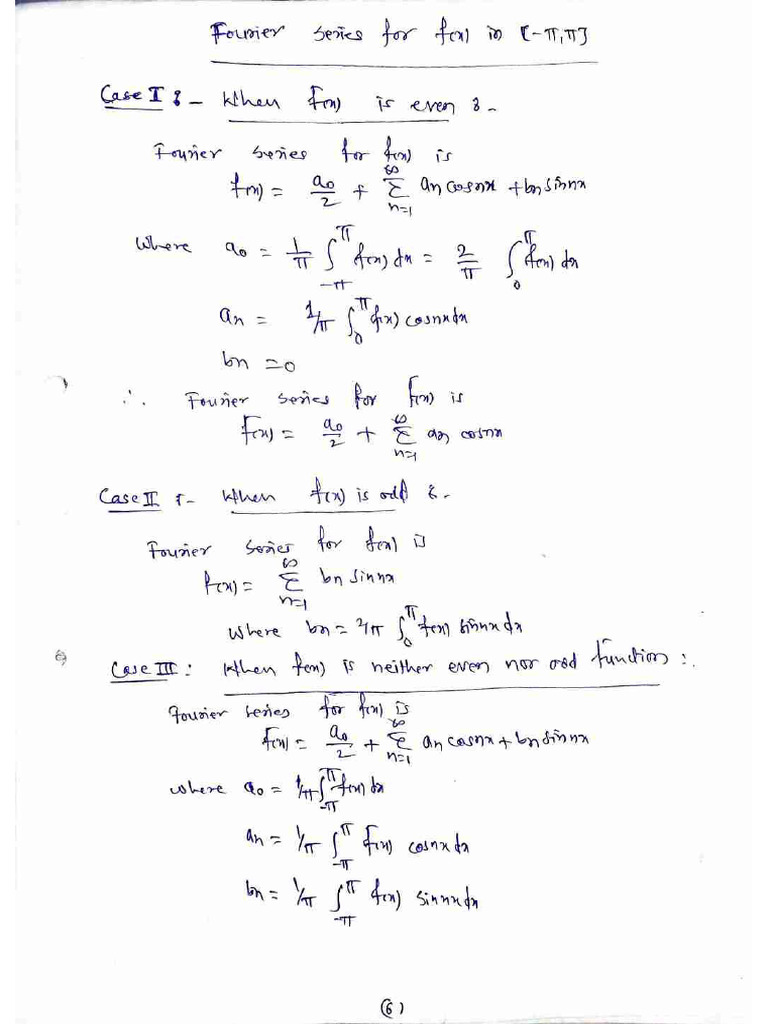 Fourier series for f(x) in [-π,π]
Case I :- When f(x) is even :-
Fourier series for f(x) is
f(x) = a0/2 + ∞Σn=1 an cosnx + bn sinnx
Where a0 = 1/π ∫_-π^π f(x) dx = 2/π ∫_0^π f(x) dx
an = 1/π ∫_0^π f(x) cosnx dx
bn = 0
∴ Fourier series for f(x) is
f(x) = a0/2 + ∞Σn=1 an cosnx
Case II :- When f(x) is odd :-
Fourier series for f(x) is
f(x) = ∞Σn=1 bn sinnx
Where bn = 2/π ∫_0^π f(x) sinnx dx
Case III : When f(x) is neither even nor odd function :.
Fourier series for f(x) is
f(x) = a0/2 + ∞Σn=1 an cosnx + bn sinnx
where a0 = 1/π ∫_-π^π f(x) dx
an = 1/π ∫_-π^π f(x) cosnx dx
bn = 1/π ∫_-π^π f(x) sinnx dx
(6)